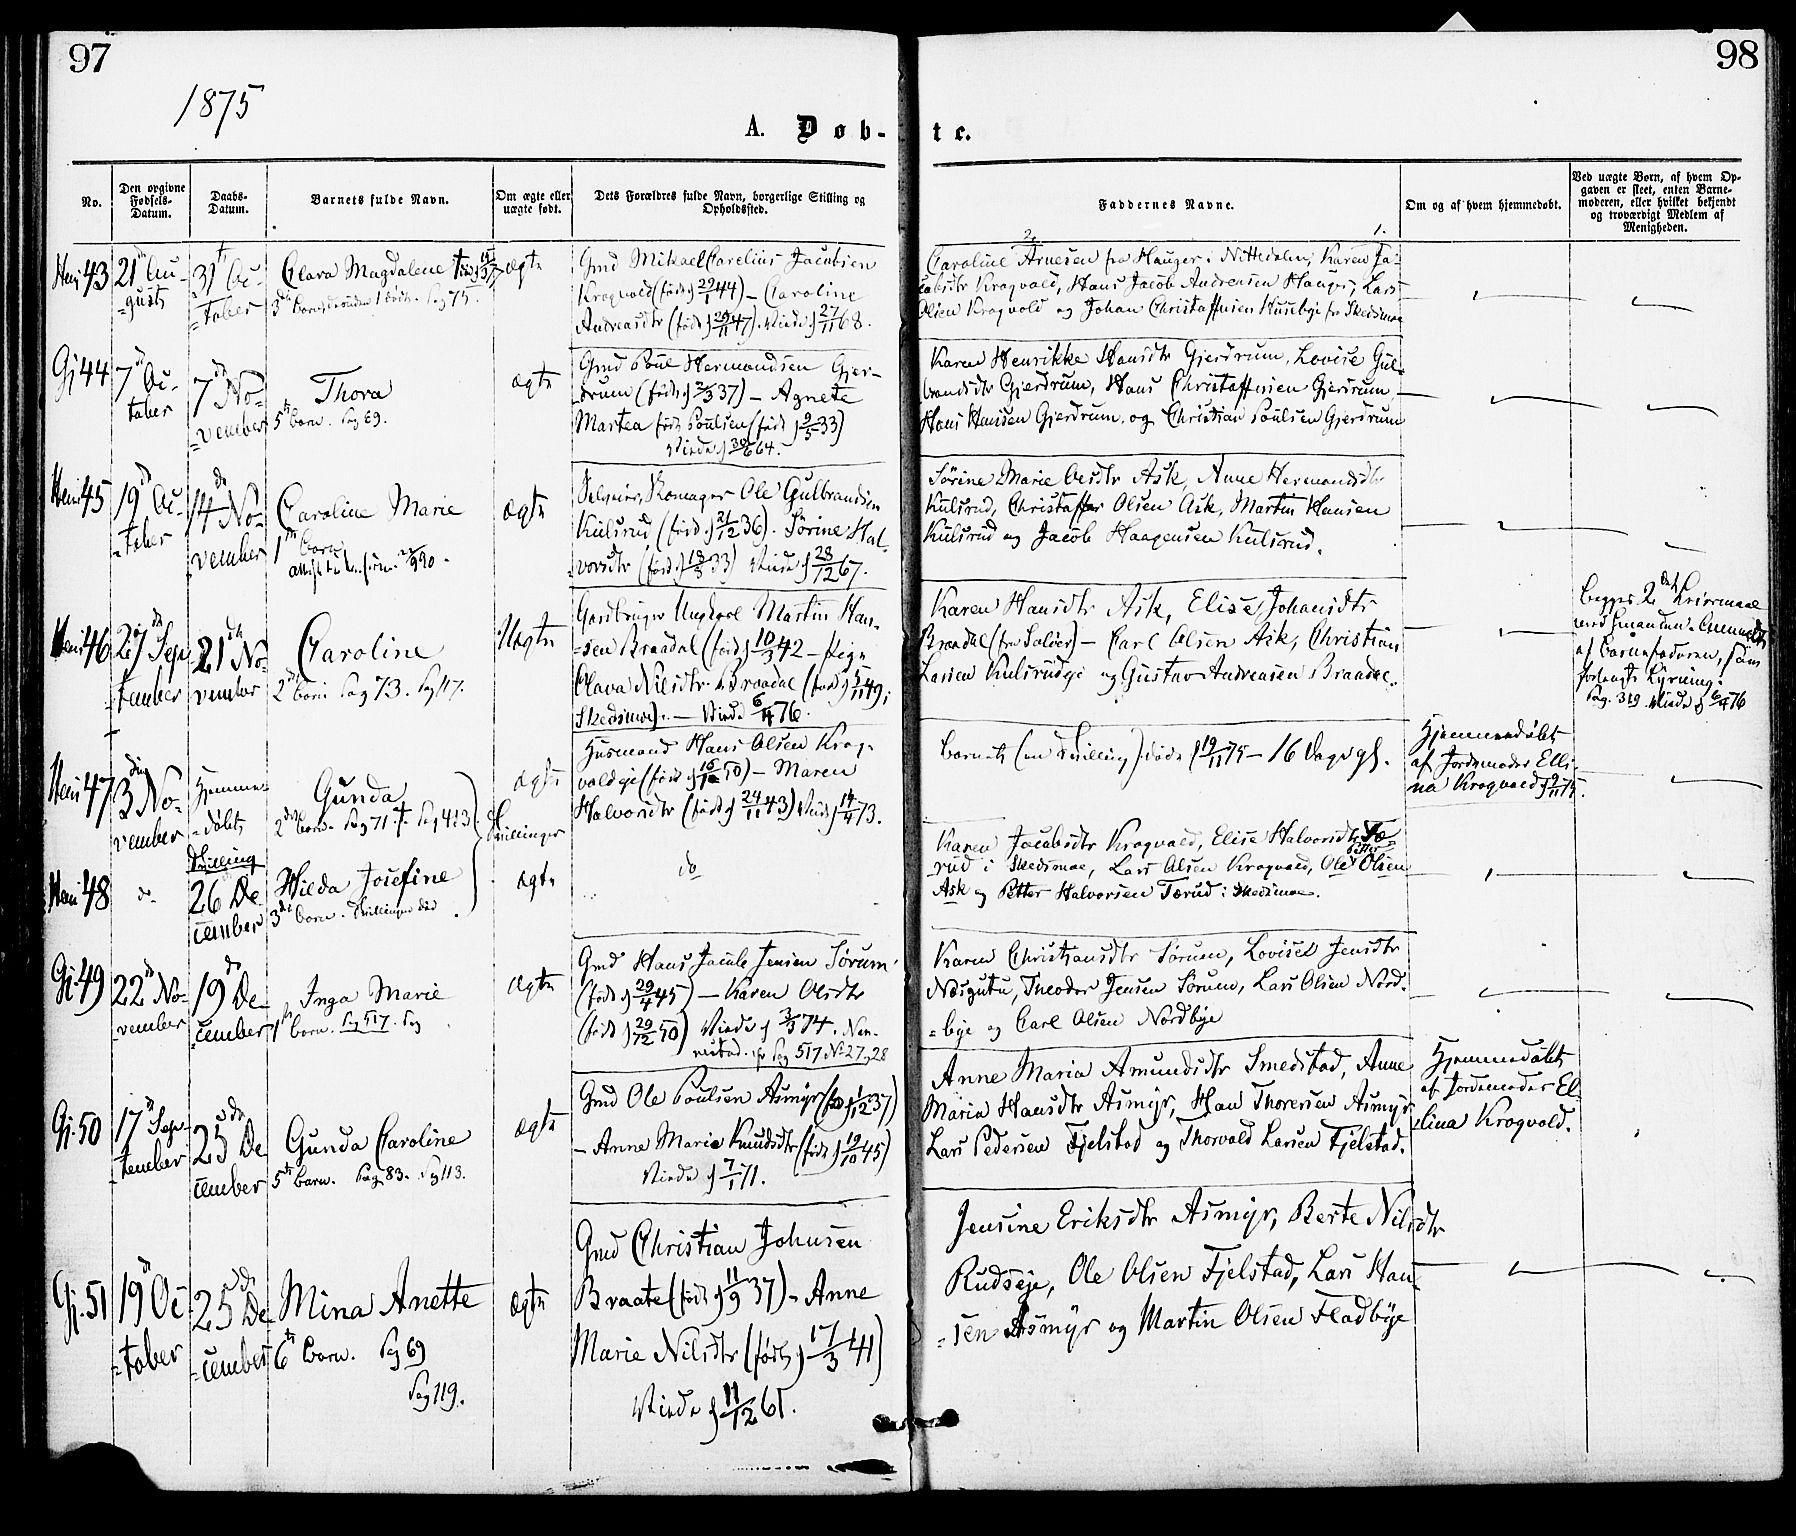 97
98
1875
A. Døb-
te.
No.
Den opgivne
Fødsels-
Datum.
Daabs-
Datum.
Barnets fulde Navn.
Om ægte eller
uægte født.
Dets Forældres fulde Navn, borgerlige Stilling og
Opholdssted.
Faddernes Navne.
Om og af hvem hjemmedøbt.
Ved uægte Børn, af hvem Op-
gaven er skeet, enten Barne-
moderen, eller hvilket bekjendt
og troværdigt Medlem af
Menigheden.
43
21 Au-
gust
31 Oc-
tober
Clara Magdalene
ægte
Gmd Mikael Carelius Jacobsen
Krogvold (født 29/1 44) – Caroline
Andreasdtr (født 47). Viede 27/11 68.
Caroline Arnesen fra Hauger i Nittedalen, Karen Ja-
cobsdtr Krogvold, Hans Jacob Andreasen Hauger, Lars
Olsen Krogvold og Johan Christoffersen Huseby fra Skedsmoe
Gj 44
7 Oc-
tober
7 No-
vember
Thora
5 barn. Pag 69.
ægte
Gmd Poul Hermandsen Gjer-
drum (født 37) – Agnete
Martea født Poulsen (født 9/5 33)
Viede 30/6 64.
Karen Henrikke Hansdtr Gjerdrum, Lovise Gul-
brandsdtr Gjerdrum, Hans Christoffersen Gjerdrum,
Hans Hansen Gjerdrum og Christian Poulsen Gjerdrum
45
19 Oc-
tober
14 No-
vember
Caroline Marie
1 barn
ægte
Ole Gulbrandsen
Kulsrud (født 21/12 36). Sørine Hal-
vorsdtr (født 33) Viede 28/12 67.
Sørine Marie Olsdtr Ask, Anne Hermandsdtr
Kulsrud, Christoffer Olsen Ask, Martin Hansen
Kulsrud og Jacob Haagensen Kulsrud.
46
27 Sep-
tember
21 No-
vember
Caroline
2 barn Pag 73. Pag 117.
Uægte
Gaardbruger Ungkarl Martin Han-
sen Braadal (født 10/3 42 – Pige
Olava Nilsdtr Braadal (født 49,
Skedsmoe). – Viede 6/4 76.
Karen Hansdtr Ask, Elise Johansdtr
Braadal (fra Soløer) – Carl Olsen Ask, Christian
Larsen Kulsrudeje og Gustav Andreasen Braadal.
Begges 2
af Barnefaderen, som
Pag. 319. Viede 6/4 76
47
3 No-
vember
Hjemme-
døbt
Gunda
2 barn. Pag 71. † Pag 423
ægte
Tvillinger
Husmand Hans Olsen Krog-
voldeje (født 50) – Maren
Halvorsdtr (født 24/11 43) Viede 14/4 73.
Barnet (en Tvilling) døde 19/11 75 – 16 Dage gl.
Hjemmedøbt
af Jordemoder Elli-
na Krogvold 9/11 75.
48
do
Tvilling
26 De-
cember
Hilda Josefine
3 barn. Tvillinger
ægte
do
Karen Jacobsdtr Krogvold, Elise Halvorsdtr Tæ-
rud i Skedsmoe, Lars Olsen Krogvold, Ole Olsen
Ask og Petter Halvorsen Tærud i Skedsmoe.
Gj. 49
22 No-
vember
19 De-
cember
Inga Marie
1 barn. Pag 517. Pag
ægte
Gmd Hans Jacob Jensen Sørum
(født 29/4 45) – Karen Olsdtr
(født 20/12 50) Viede 3/3 74.
Pag 517 No 27, 28
Karen Christiansdtr Sørum, Lovise Jensdtr
Theodor Jensen Sørum, Lars Olsen Nord-
bye og Carl Olsen Nordbye
Gj. 50
17 Sep-
tember
25 De-
cember
Gunda Caroline
5 barn. Pag 83. Pag 113.
ægte
Gmd Ole Poulsen Asmyr (fød 1/12 37)
– Anne Maria Knudsdtr (født 19/10 45)
Viede 7/1 71.
Anne Maria Amundsdtr Smedstad, Anne
Maria Hansdtr Asmyr, Hans Thoresen Asmyr,
Lars Pedersen Fjelstad og Thorvald Larsen Fjelstad.
Hjemmedøbt
af Jordemoder El-
lina Krogvold.
Gj. 51
19 Oc-
tober
25 De-
cember
Mina Anette
6 barn. Pag 69
Pag 119.
ægte
Gmd Christian Johnsen
Braate (født 11/9 37) – Anne
Marie Nilsdtr (født 17/3 41)
Viede 11/12 61.
Jensine Eriksdtr Asmyr, Berte Nilsdtr
Rudseje, Ole Olsen Fjelstad, Lars Han-
sen Asmyr og Martin Olsen Fladbye